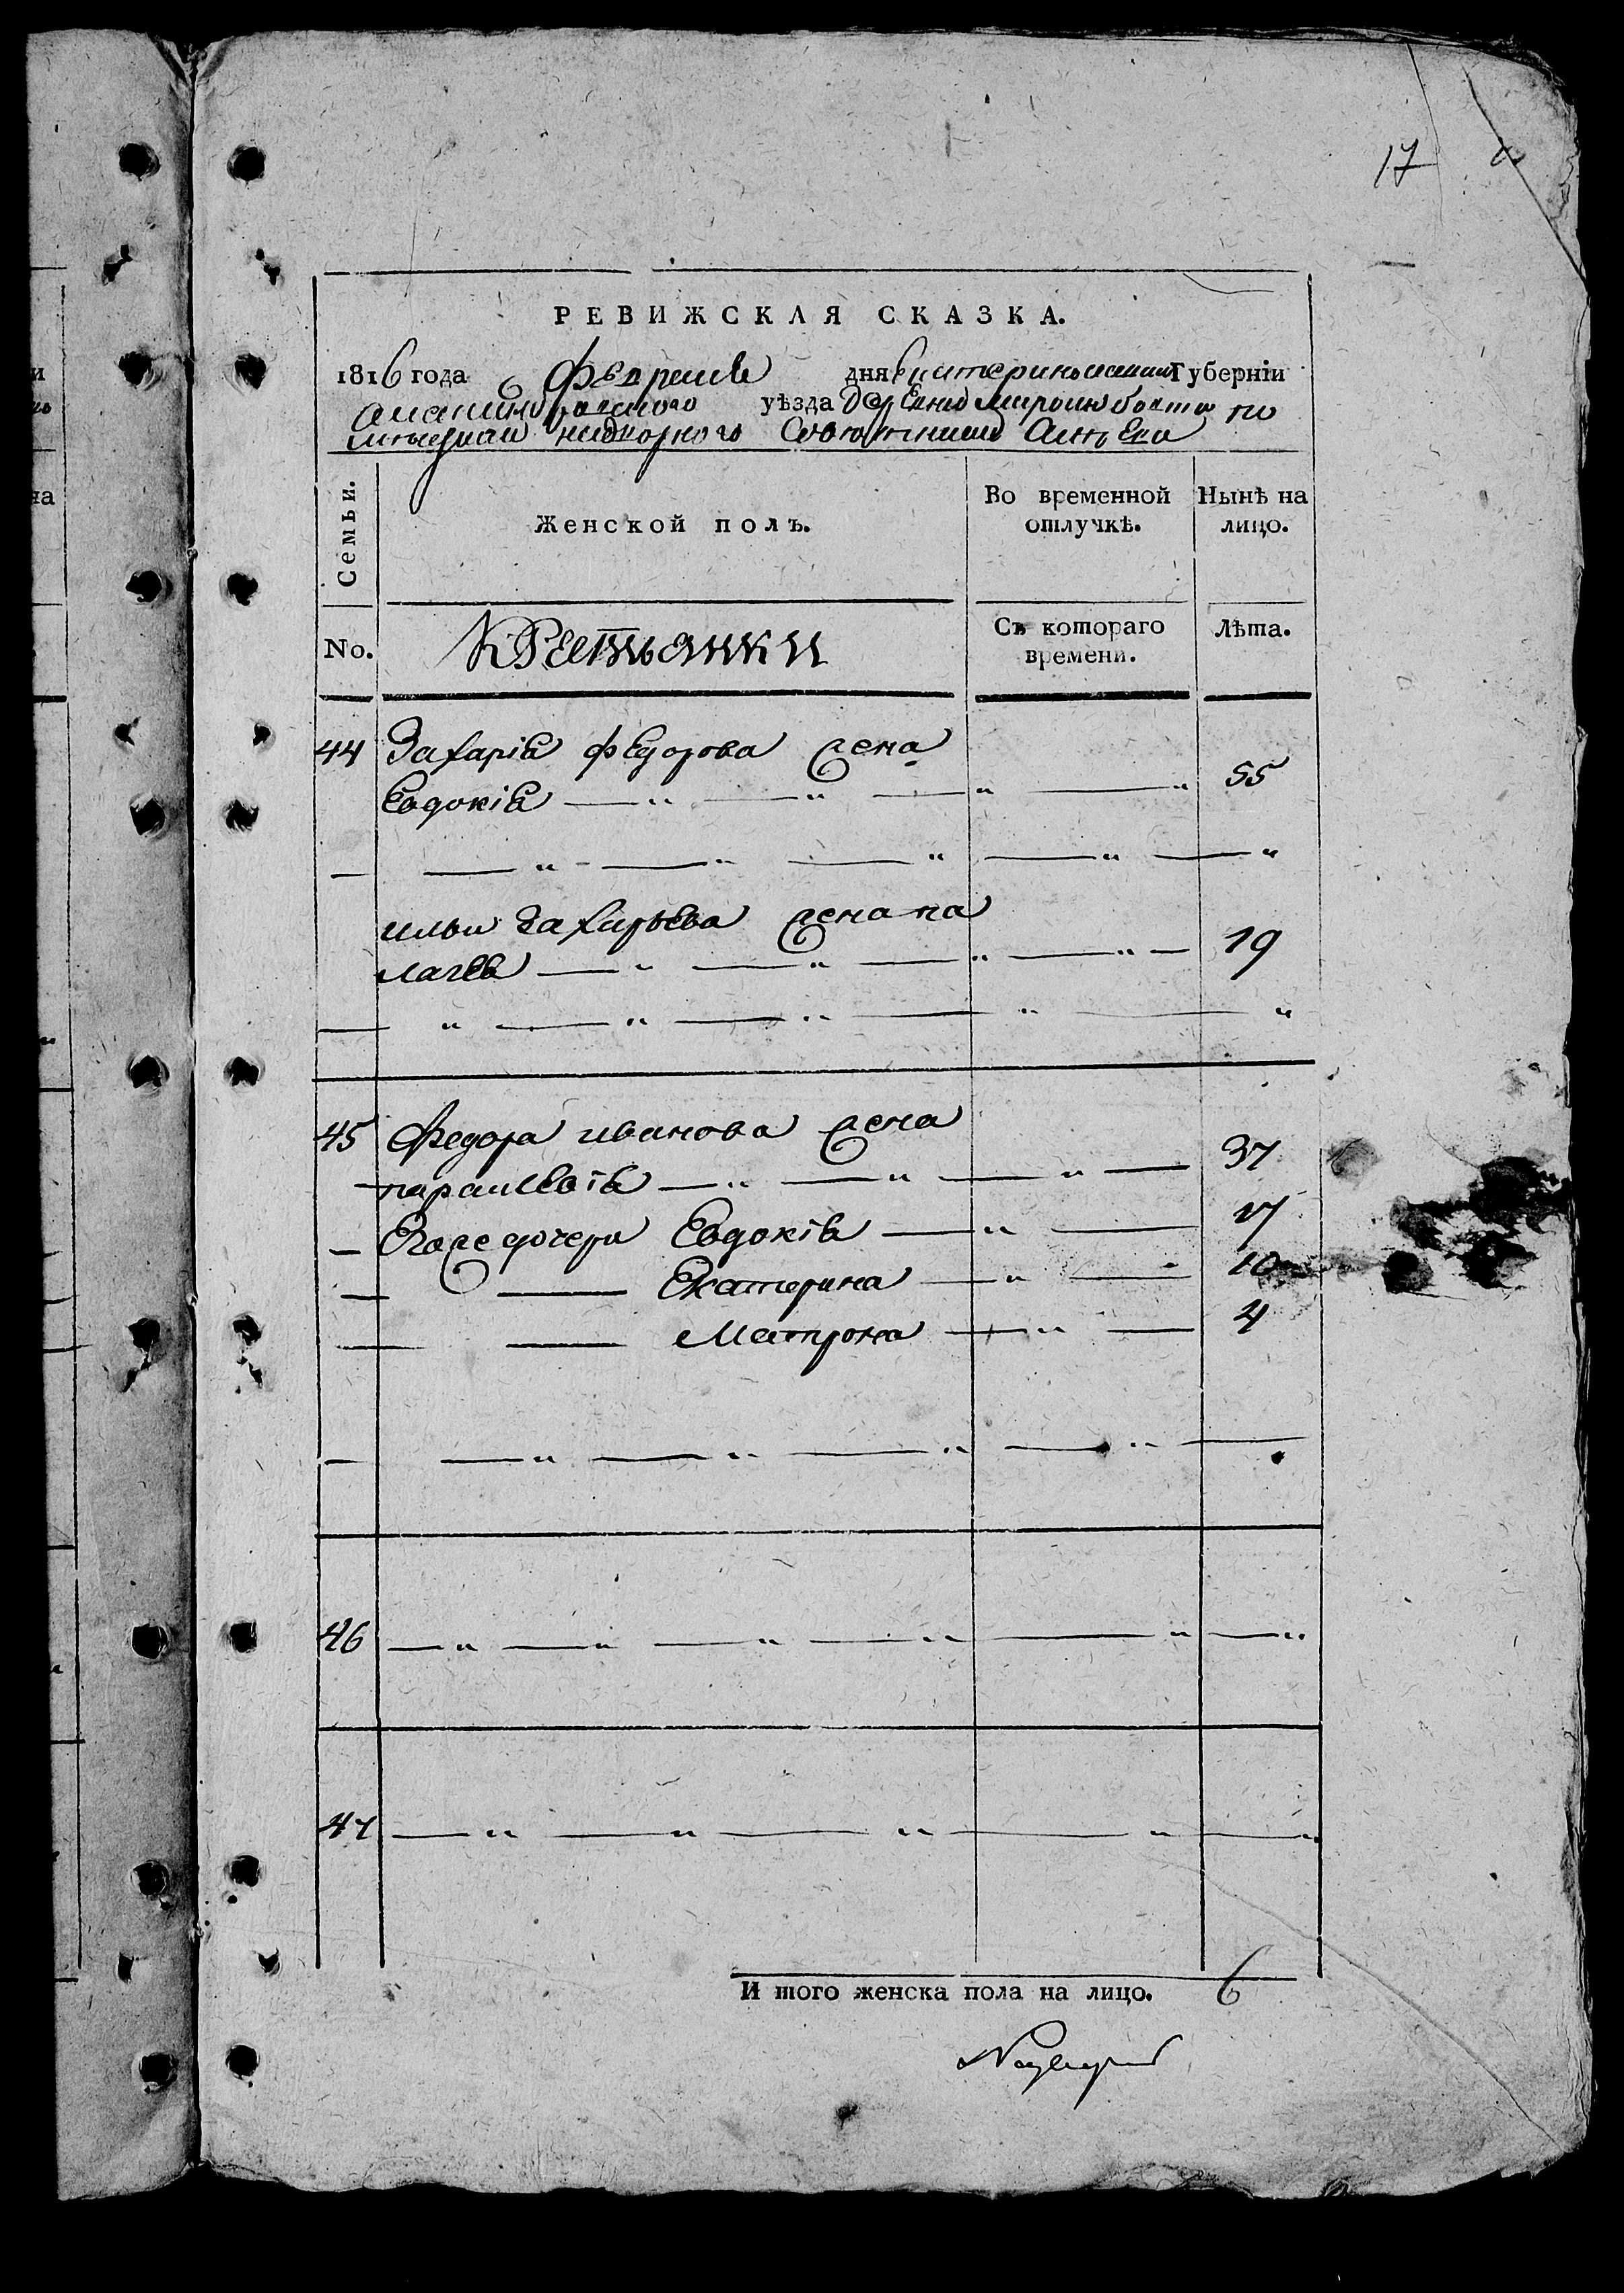 17
РЕВИЖСКАЯ СКАЗКА.
1816 года Февраля 6 дня Екатеринославской Губерніи
уѣзда деревни
надворного Советника
Семьи. Женской полъ. Во временной отлучкѣ. Нынѣ на лицо.
No. Крестьянки Съ котораго времени. Лѣта.
44 Захарія Федорова жена
Евдокія — " — " — " — " 55
— — " — — " — " — " — "
ильи Захарьева жена па
лагея — " — " — " — " — 19
— " — " — " — " — "
45 Федора иванова жена
— параскевія — " — " — " — 37
— Егоже дочери Евдокія — " — 17
— — Екатерина — " — 10
— — Матрона — " — 4
— — " — " — " — " —
46 — " — " — " — " — " — "
47 — " — " — " — " — "
И того женска пола на лицо. 6